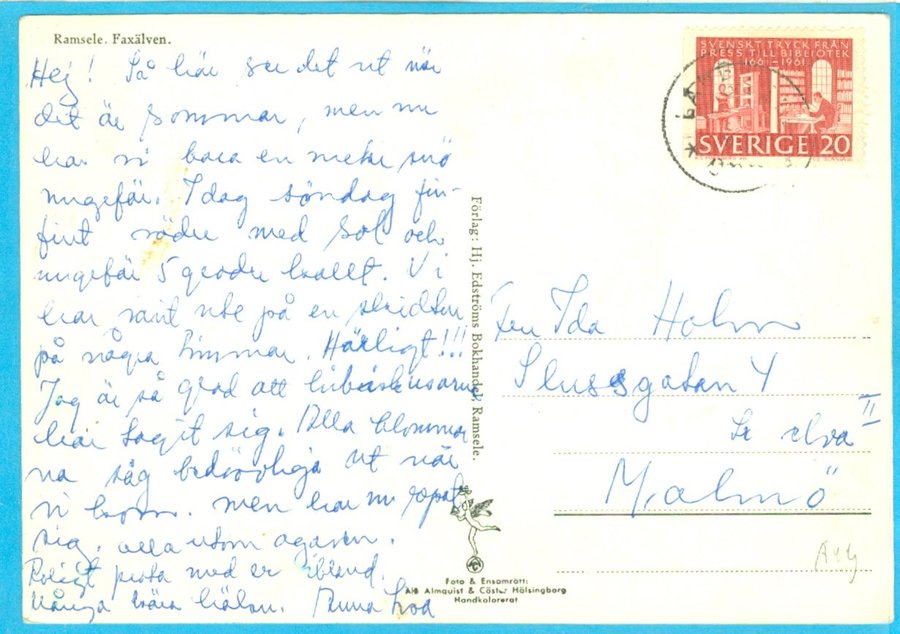 Ramsele. Faxälven.
Hej! Så här ser det ut när
det är sommar, men nu
har vi bara en meter snö
ungefär. Idag söndag fin-
fint väder med sol och
ungefär 5 grader kallt. Vi
har varit ute på en skidtur
på några timmar. Härligt!!!
Jag är så glad att
har tagit sig. Alla blommor
na såg bedrövliga ut när
vi kom. men har nu repat
sig, alla utom
Roligt prata med er ibland.
Många kära hälsn. Anna Lisa
Förlag: Hj. Edströms Bokhandel, Ramsele.
SVENSKT TRYCK FRÅN
PRESS TILL BIBLIOTEK
1661-1961
SVERIGE 20
Fru Ida Holm
Slussgatan 4
II
Malmö
Foto & Ensamrätt:
A/B Almquist & Cöster Hälsingborg
Handkolorerat